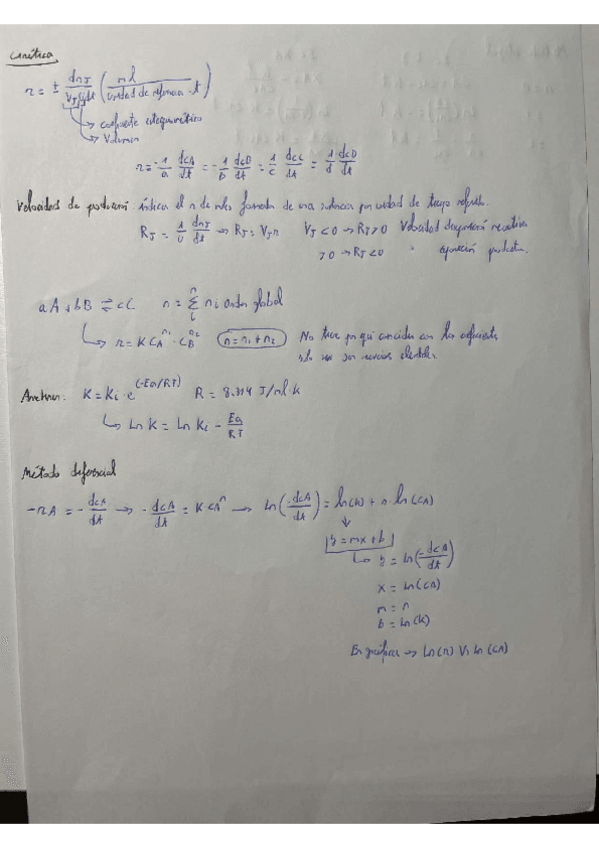 Cinética
r = ± dnJ / VJ·V·dt ( mol / unidad de referencia · t )
→ coeficiente estequiométrico
→ Volumen
r = -1/a dCA/dt = -1/b dCB/dt = 1/c dCC/dt = 1/d dCD/dt
Velocidad de producción indica el n de moles formados de una sustancia por unidad de tiempo
RJ = 1/V dnJ/dt → RJ = VJ r VJ < 0 → RJ > 0 Velocidad desaparición reactivos
> 0 → RJ < 0 " aparición productos
aA + bB ⇌ cC n = Σ ni orden global
↳ r = K CA^n1 · CB^n2 n = n1 + n2 No tiene por qué coincidir con los coeficientes
solo
Arrhenius: K = Ki · e^(-Ea/RT) R = 8.314 J/mol·K
↳ Ln K = Ln Ki - Ea/RT
Método diferencial
-rA = - dCA/dt → - dCA/dt = K CA^n → Ln(-dCA/dt) = ln(K) + n · ln(CA)
↓
y = mx + b
↳ y = Ln(-dCA/dt)
x = Ln(CA)
m = n
b = Ln(K)
En gráficas → Ln(r) Vs Ln(CA)